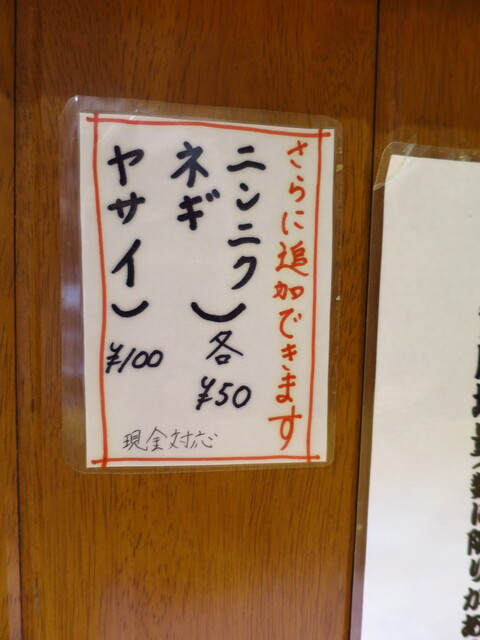 さらに追加できます
ニンニク
ネギ
各
¥50
ヤサイ
¥100
現金対応